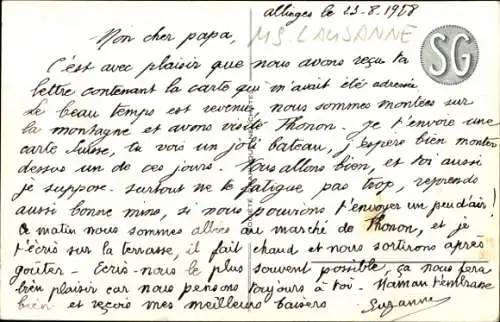 allinges le 23-8.1958
Mon cher papa,
MS LAUSANNE
SG
C'est avec plaisir que nous avons reçu ta
lettre contenant la carte qui m'avait été adressée
Le beau temps est revenu nous sommes montées sur
la montagne et avons visité Thonon. Je t'envoie une
carte Suisse, tu voie un joli bateau, j'espère bien monter
dessus un de ces jours. Nous allons bien, et toi aussi
je suppose. surtout ne te fatigue pas trop, reprends
aussi bonne mine, si nous pouvions t'envoyer un peu d'air!
Ce matin nous sommes allées au marché de Thonon, et je
t'écris sur la terrasse, il fait chaud et nous sortirons après
goûter - Ecris-nous le plus souvent possible, ça nous fera
bien plaisir car nous pensons toujours à toi. Maman t'embrasse
bien et reçois mes meilleurs baisers
Suzanne